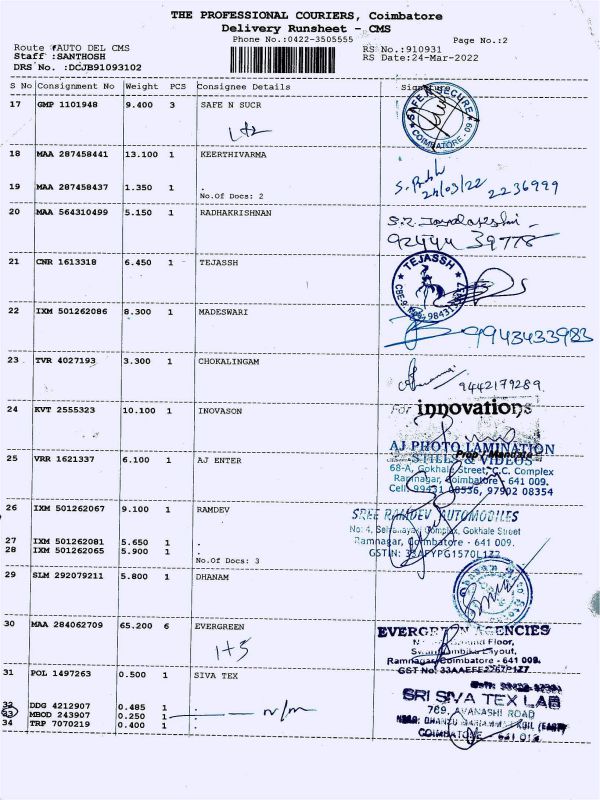 THE PROFESSIONAL COURIERS, Coimbatore
Delivery Runsheet - CMS
Phone No.:0422-3505555
Page No.:2
Route #AUTO DEL CMS
RS No.:910931
Staff :SANTHOSH
RS Date:24-Mar-2022
DRS No. :DCJB91093102
S No Consignment No Weight PCS Consignee Details Signature
17 GMP 1101948 9.400 3 SAFE N SUCR
1+2
SAFE N SECURE
COIMBATORE - 09
18 MAA 287458441 13.100 1 KEERTHIVARMA
19 MAA 287458437 1.350 1 .
24/03/22 2236999
No.Of Docs: 2
20 MAA 564310499 5.150 1 RADHAKRISHNAN
92444 39778
21 CNR 1613318 6.450 1 TEJASSH
TEJASSH
22 IXM 501262086 8.300 1 MADESWARI
9943433983
23 TVR 4027193 3.300 1 CHOKALINGAM
9442179289
24 KVT 2555323 10.100 1 INOVASON
For innovations
25 VRR 1621337 6.100 1 AJ ENTER
AJ PHOTO LAMINATION
STILLS & VIDEOS
68-A, Gokhale Street, C.C. Complex
Ramnagar, Coimbatore - 641 009.
Cell: 99431 08556, 97902 08354
26 IXM 501262067 9.100 1 RAMDEV
SREE RAMDEV AUTOMOBILES
Complex, Gokhale Street
27 IXM 501262081 5.650 1 .
Ramnagar, Coimbatore - 641 009.
28 IXM 501262065 5.900 1 .
No.Of Docs: 3
29 SLM 292079211 5.800 1 DHANAM
30 MAA 284062709 65.200 6 EVERGREEN
1+5
EVERGREEN AGENCIES
Floor,
Layout,
Ramnagar, Coimbatore - 641 009.
31 POL 1497263 0.500 1 SIVA TEX
SRI SIVA TEX LAB
769, AVANASHI ROAD
32 DDG 4212907 0.485 1 .
33 MBOD 243907 0.250 1 . n/m
34 TRP 7070219 0.400 1 .